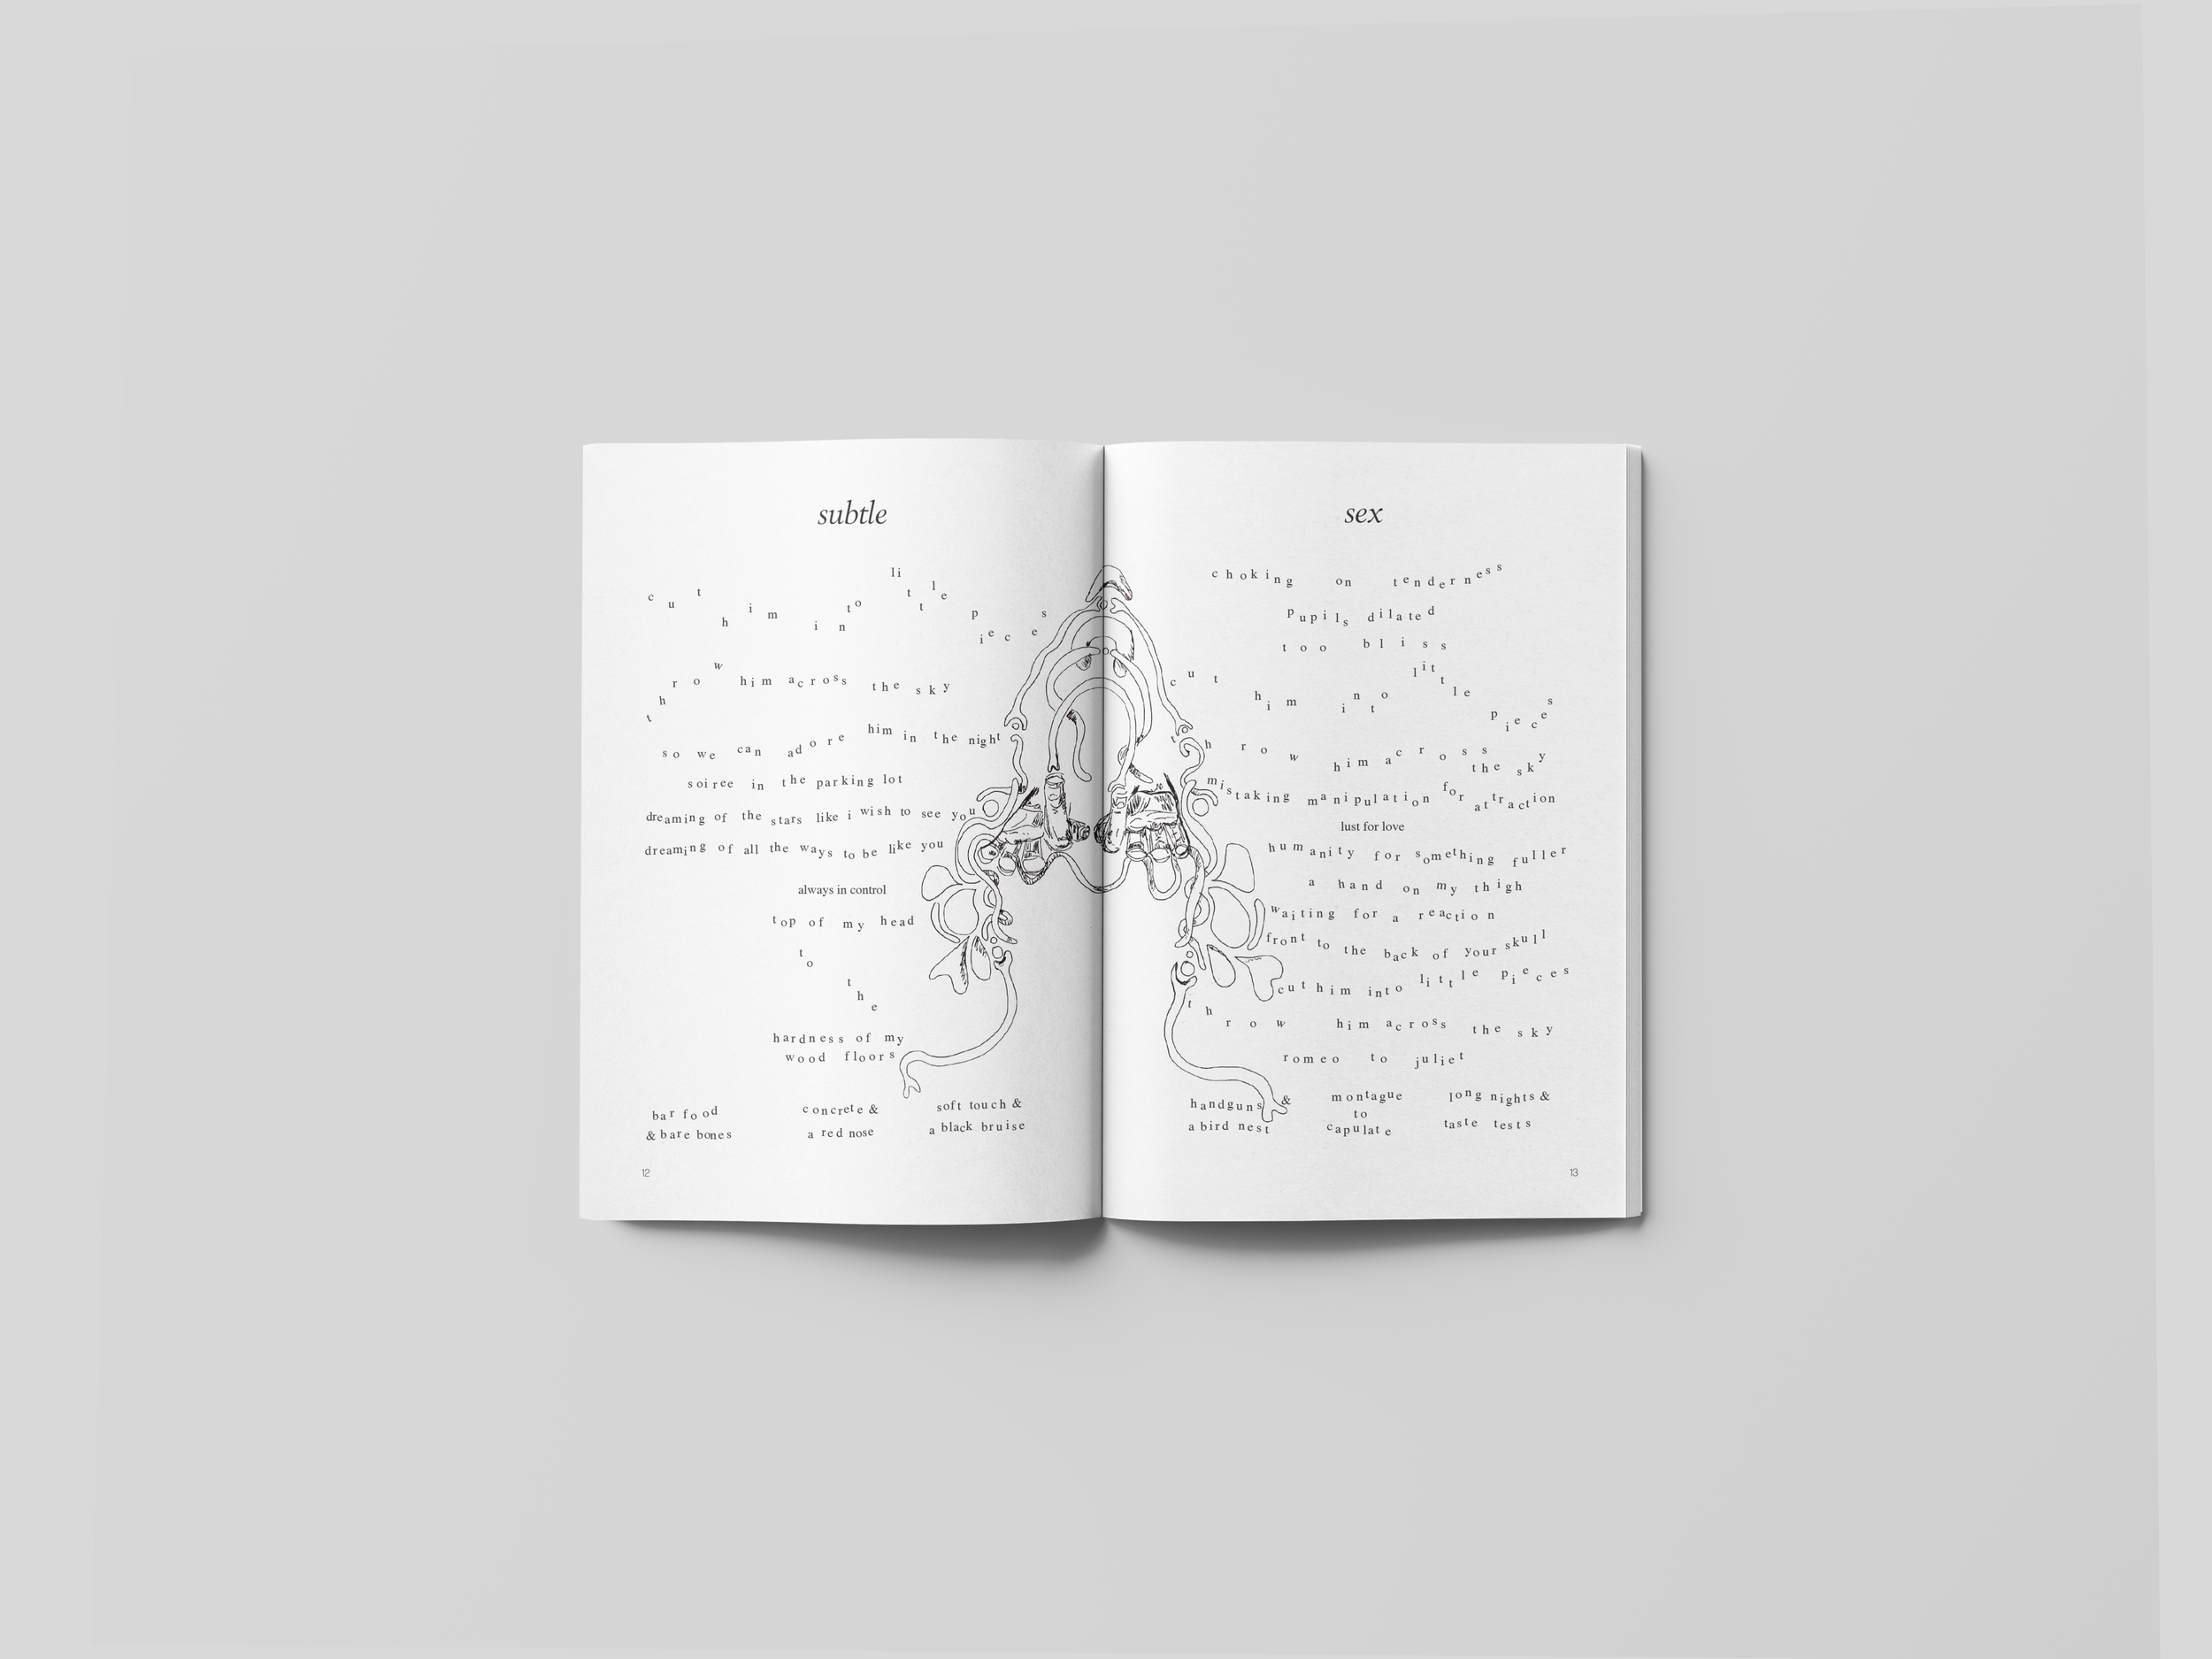 subtle
cut him into little pieces
throw him across the sky
so we can adore him in the night
soiree in the parking lot
dreaming of the stars like i wish to see you
dreaming of all the ways to be like you
always in control
top of my head
to
the
hardness of my
wood floors
bar food
& bare bones
concrete &
a red nose
soft touch &
a black bruise
12
sex
choking on tenderness
pupils dilated
too bliss
cut him into little pieces
throw him across the sky
mistaking manipulation for attraction
lust for love
humanity for something fuller
a hand on my thigh
waiting for a reaction
front to the back of your skull
cut him into little pieces
throw him across the sky
romeo to juliet
handguns &
a bird nest
montague
to
capulate
long nights &
taste tests
13